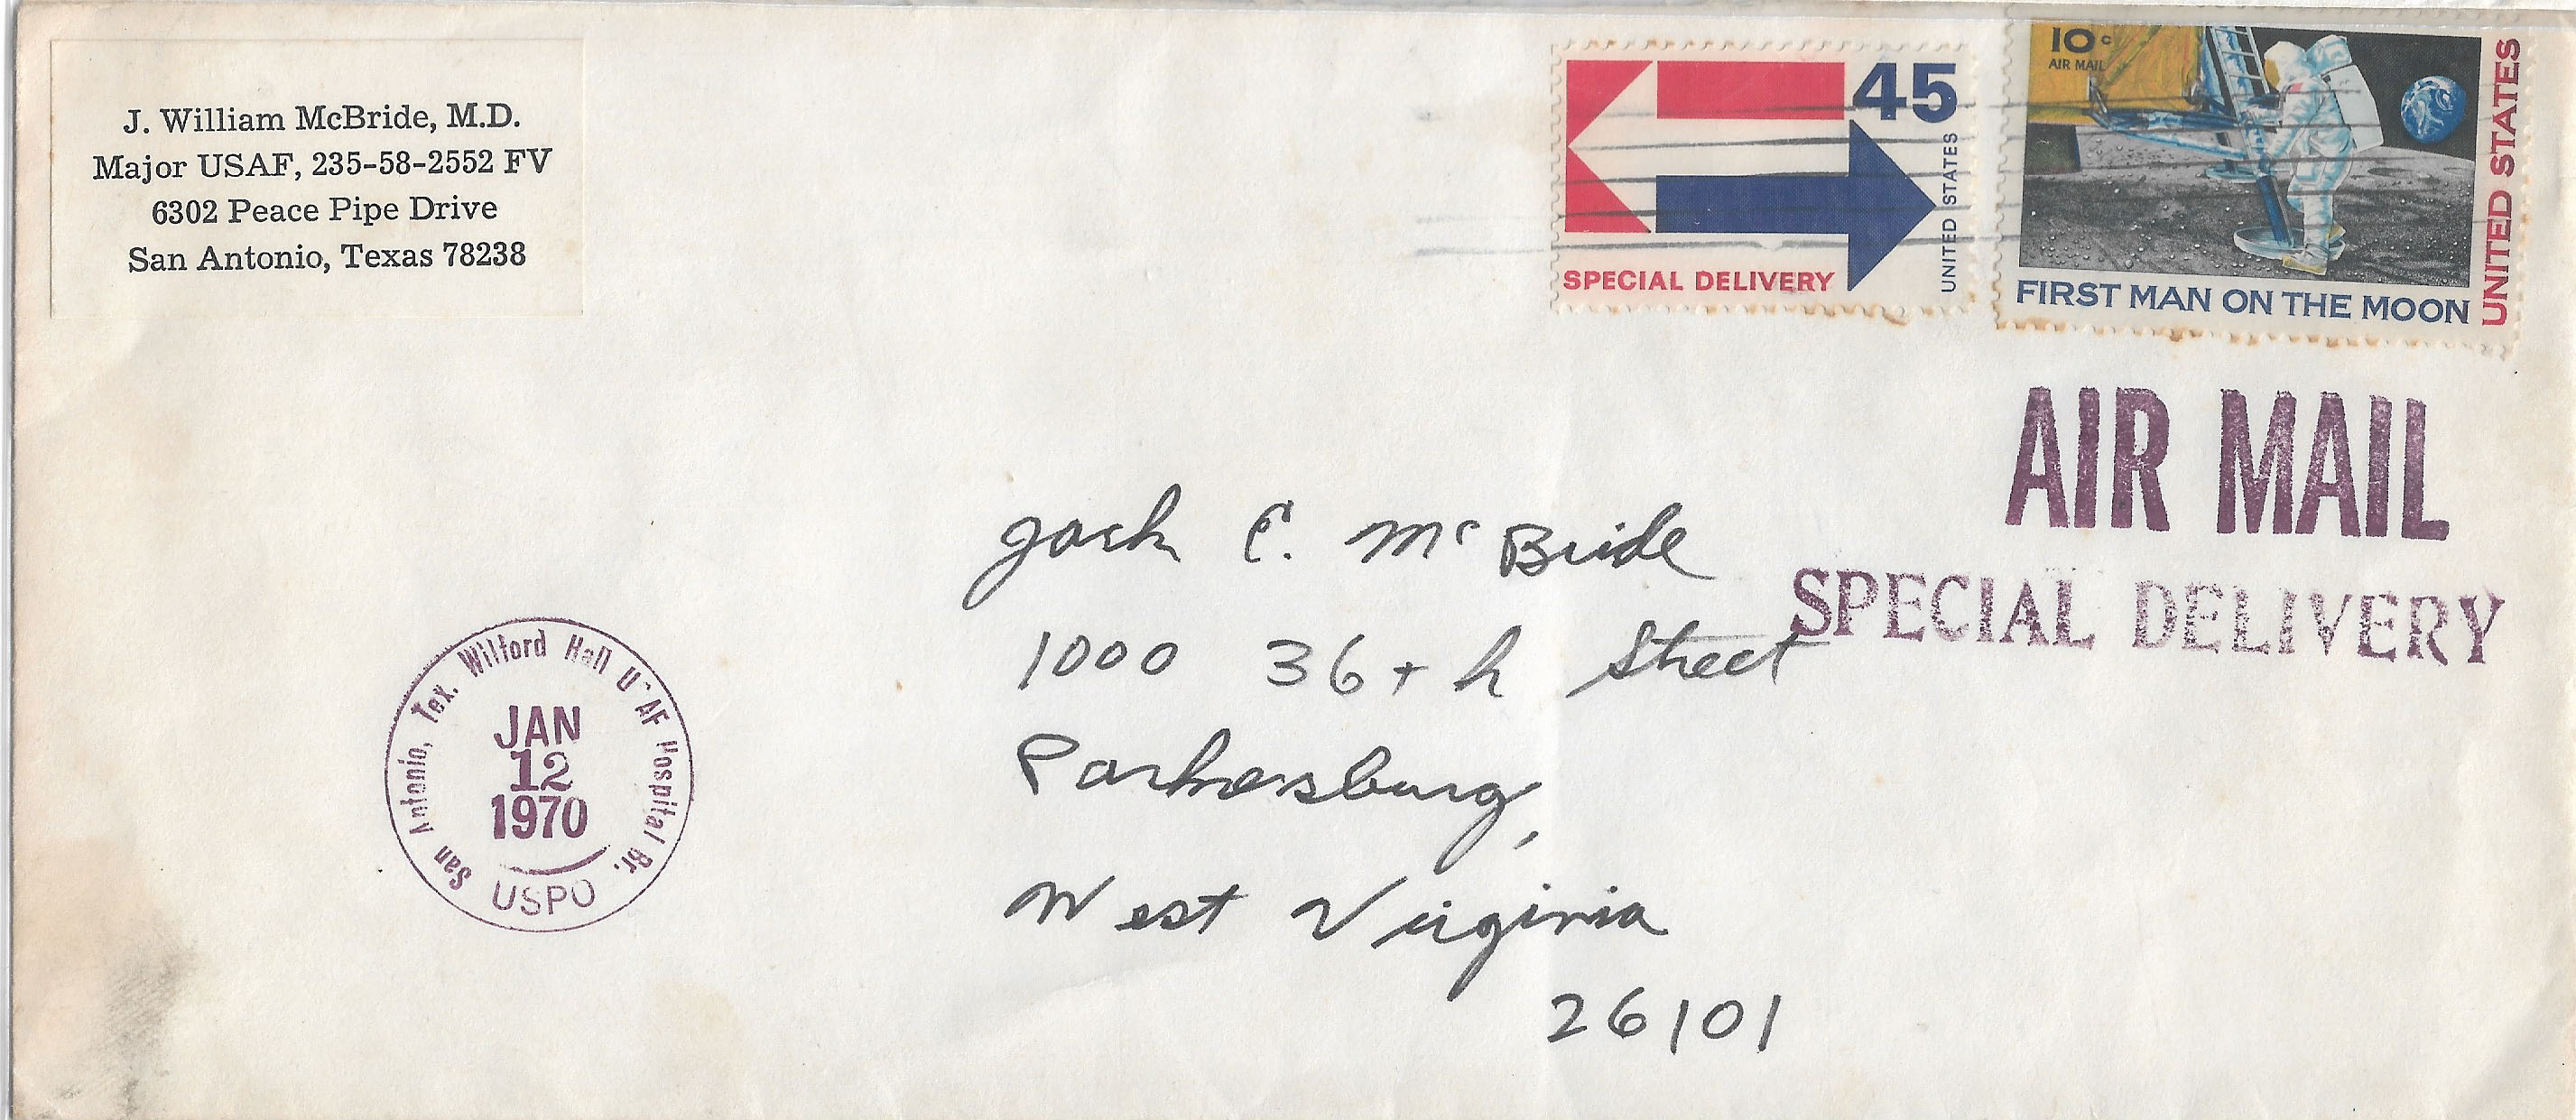 J. William McBride, M.D.
Major USAF, 235-58-2552 FV
6302 Peace Pipe Drive
San Antonio, Texas 78238
45
UNITED STATES
SPECIAL DELIVERY
10c
AIR MAIL
UNITED STATES
FIRST MAN ON THE MOON
AIR MAIL
SPECIAL DELIVERY
Jack McBride
1000 36th Street
Parkersburg,
West Virginia
26101
San Antonio, Tex. Wilford Hall USAF Hospital Br.
JAN
12
1970
USPO